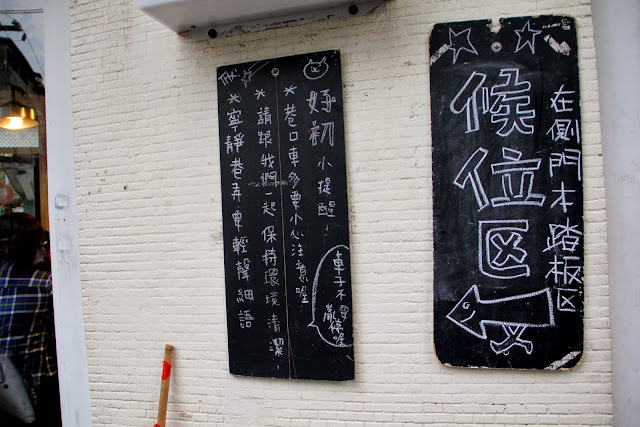 在側門木踏板区
候位区
好初小提醒！
＊巷口車多要小心注意喔！
＊請跟我們一起保持環境清潔！
＊寧靜巷弄要輕聲細語
車子不要
亂停喔